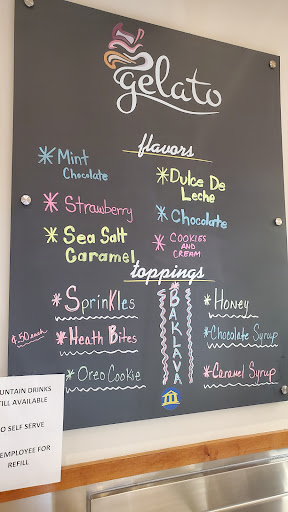 gelato
flavors
* Mint
Chocolate
* Strawberry
* Sea Salt
Caramel
* Dulce De
Leche
* Chocolate
* COOKIES
AND
CREAM
toppings
$.50 each
* SprinKles
* Heath Bites
* Oreo Cookie
* BAKLAVA
* Honey
* Chocolate Syrup
* Caramel Syrup
UNTAIN DRINKS
TILL AVAILABLE
O SELF SERVE
EMPLOYEE FOR
REFILL